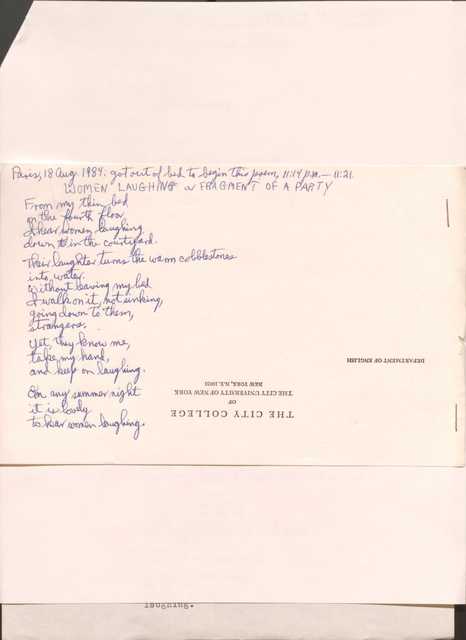 Paris, 18 Aug. 1984: got out of bed to begin this poem, 11:14 p.m.—11:21.
WOMEN LAUGHING FRAGMENT OF A PARTY
From my thin bed
on the fourth floor
I hear women laughing
down in the courtyard.
Their laughter turns the warm cobblestones
into water.
Without leaving my bed
I walk on it, not sinking,
going down to them,
strangers.
Yet, they know me,
take my hand,
and keep on laughing.
On any summer night
it is lovely
to hear women laughing.
THE CITY COLLEGE
OF
THE CITY UNIVERSITY OF NEW YORK
NEW YORK, N.Y. 10031
DEPARTMENT OF ENGLISH